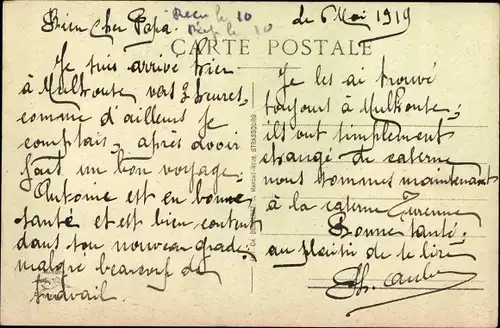 le 6 Mai 1919
Bien cher Papa.
Reçu le 10
Rép le 10
CARTE POSTALE
Je suis arrivé hier
à Mulhouse vers 3 heures,
comme d'ailleurs je
comptais, après avoir
fait un bon voyage.
Antoine est en bonne
santé et est bien content
dans son nouveau grade
malgré beaucoup de
travail.
STRASBOURG
Je les ai trouvé
toujours à Mulhouse;
ils ont simplement
changé de caserne
nous sommes maintenant
à la caserne Turenne
Bonne santé,
au plaisir de te lire